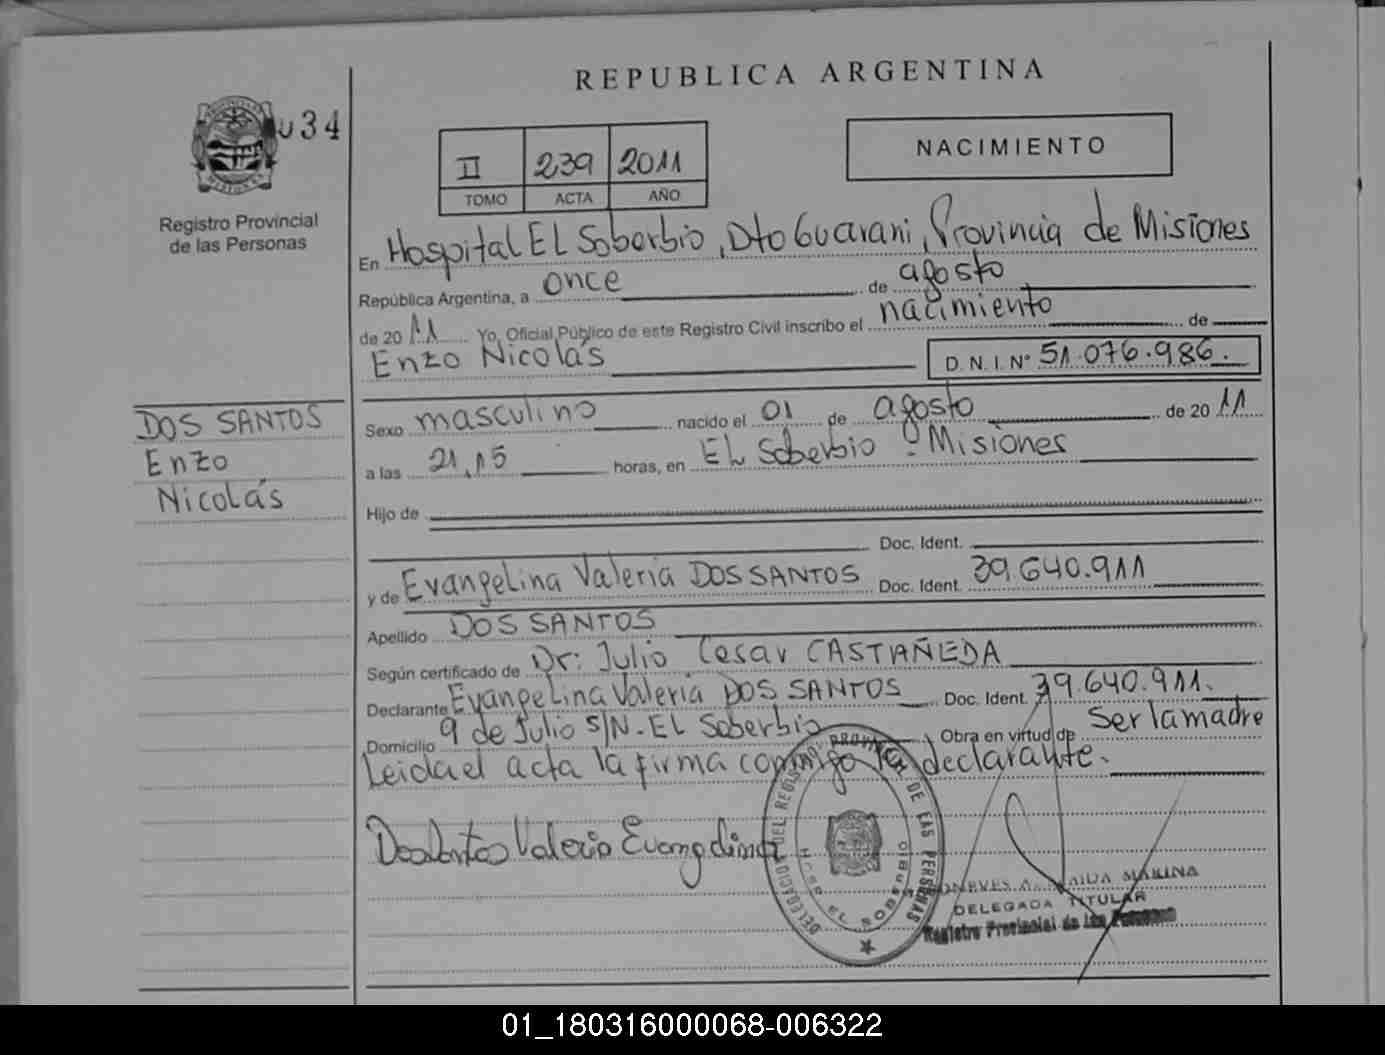 REPUBLICA ARGENTINA
034
II 239 2011
TOMO ACTA AÑO
NACIMIENTO
Registro Provincial
de las Personas
En Hospital EL Soberbio, Dto Guarani, Provincia de Misiones
República Argentina, a once de agosto
de 2011 Yo, Oficial Público de este Registro Civil inscribo el nacimiento de
Enzo Nicolás D. N. I. N° 51.076.986.
DOS SANTOS
Enzo
Nicolás
Sexo masculino nacido el 01 de agosto de 2011
a las 21,15 horas, en EL Soberbio - Misiones
Hijo de
Doc. Ident.
y de Evangelina Valeria DOS SANTOS Doc. Ident. 39.640.911
Apellido DOS SANTOS
Según certificado de Dr: Julio Cesar CASTAÑEDA
Declarante Evangelina Valeria DOS SANTOS Doc. Ident. 39.640.911.
Domicilio 9 de Julio S/N. EL Soberbio Obra en virtud de ser la madre
Leida el acta la firma conmigo la declarante.
Dos Santos Valeria Evangelina
DELEGACION DEL REGISTRO PROVINCIAL DE LAS PERSONAS
EL SOBERBIO
MARINA
DELEGADA TITULAR
Registro Provincial de las Personas
01_180316000068-006322